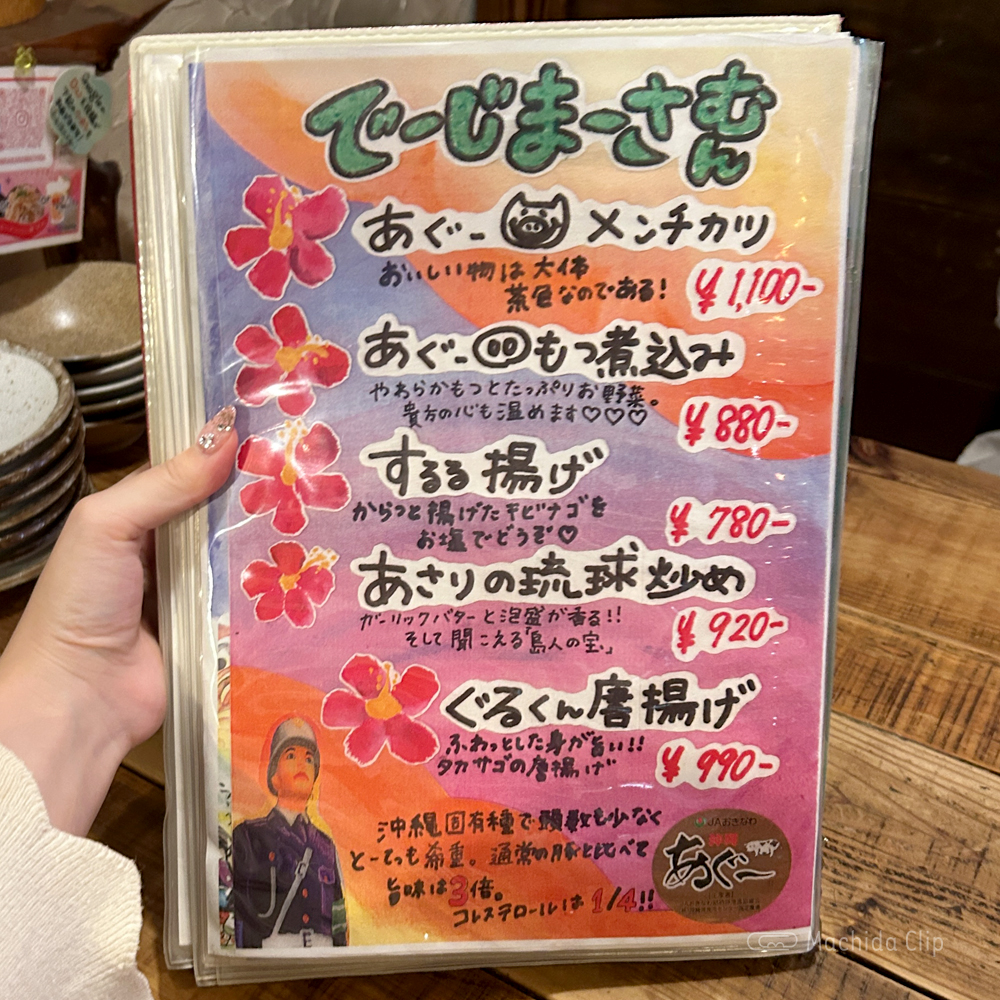 でーじまーさむん
あぐーメンチカツ
おいしい物は大体
茶色なのである!
¥1,100-
あぐーもつ煮込み
やわらかもつとたっぷりお野菜。
貴方の心も温めます♡♡♡
¥880-
するる揚げ
からっと揚げたキビナゴを
お塩でどうぞ♡
¥780-
あさりの琉球炒め
ガーリックバターと泡盛が香る!!
そして聞こえる「島人の宝」
¥920-
ぐるくん唐揚げ
ふわっとした身が旨い!!
タカサゴの唐揚げ
¥990-
沖縄固有種で頭数も少なく
とーっても希重。通常の豚と比べて
旨味は3倍。
コレステロールは1/4!!
JAおきなわ
あぐー
Machida Clip